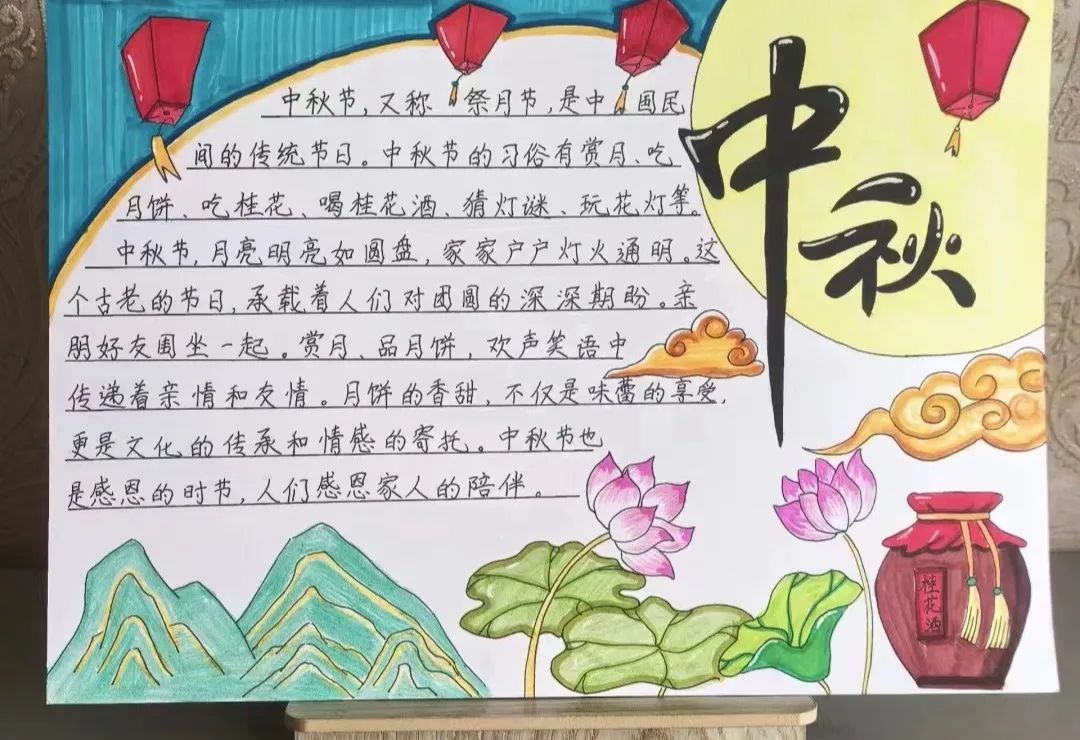 中秋节,又称 祭月节,是中 国民
间的传统节日。中秋节的习俗有赏月、吃
月饼、吃桂花、喝桂花酒、猜灯谜、玩花灯等。
中秋节,月亮明亮如圆盘,家家户户灯火通明。这
个古老的节日,承载着人们对团圆的深深期盼。亲
朋好友围坐一起。赏月、品月饼,欢声笑语中
传递着亲情和友情。月饼的香甜,不仅是味蕾的享受,
更是文化的传承和情感的寄托。中秋节也
是感恩的时节,人们感恩家人的陪伴。
中秋
桂花酒